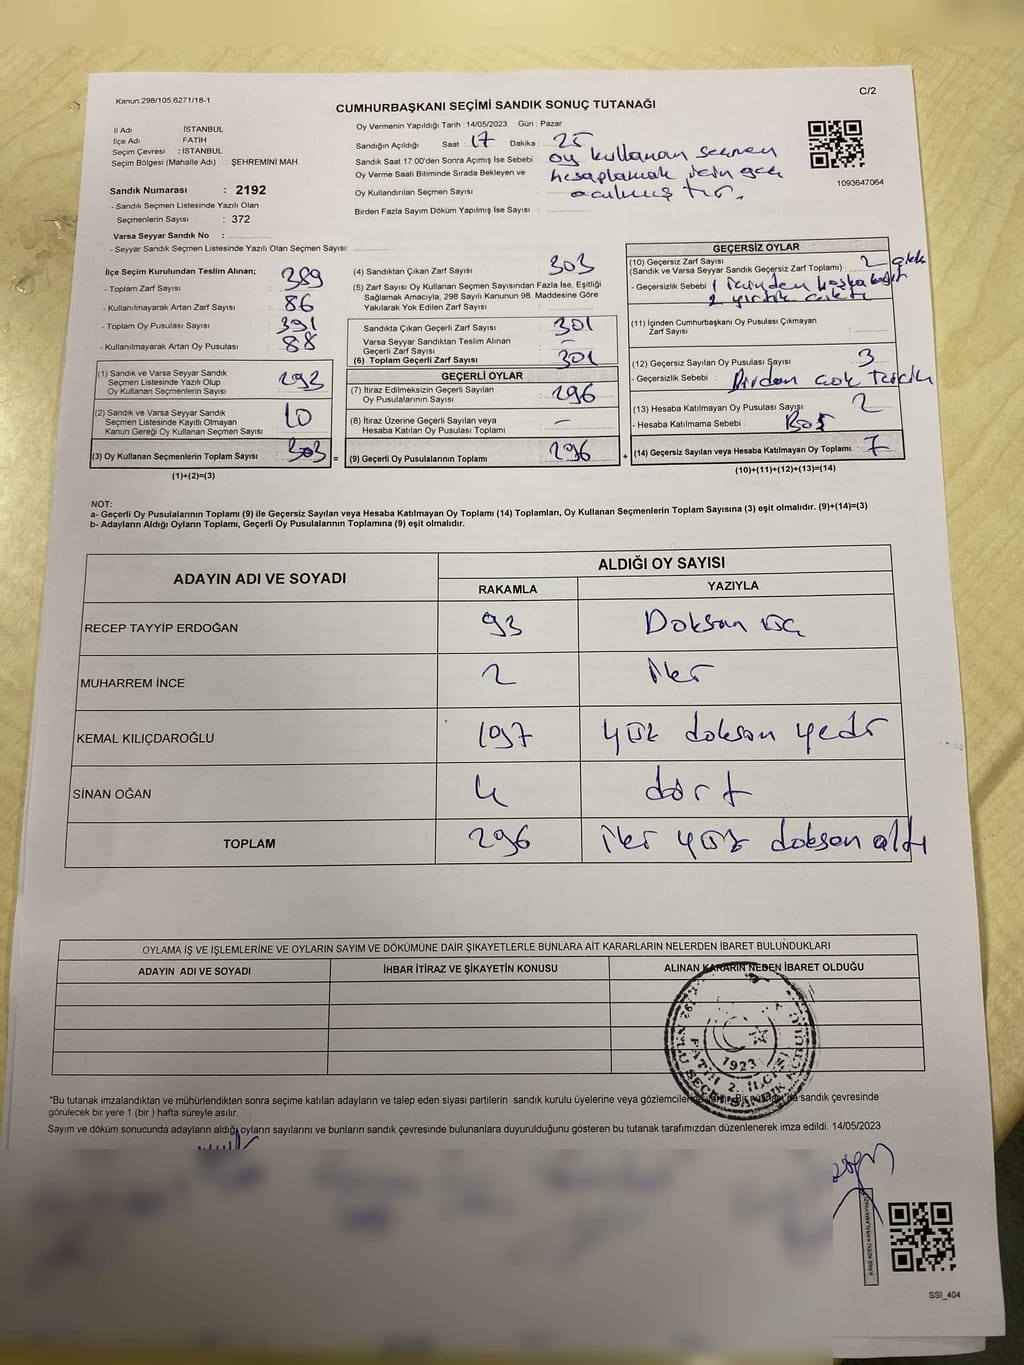 Kanun:298/105,6271/18-1
C/2
CUMHURBAŞKANI SEÇİMİ SANDIK SONUÇ TUTANAĞI
İl Adı : İSTANBUL
İlçe Adı : FATİH
Seçim Çevresi : İSTANBUL
Seçim Bölgesi (Mahalle Adı) : ŞEHREMİNİ MAH.
Sandık Numarası : 2192
- Sandık Seçmen Listesinde Yazılı Olan
Seçmenlerin Sayısı : 372
Varsa Seyyar Sandık No :
- Seyyar Sandık Seçmen Listesinde Yazılı Olan Seçmen Sayısı:
Oy Vermenin Yapıldığı Tarih : 14/05/2023 Gün : Pazar
Sandığın Açıldığı Saat : 17 Dakika : 25
Sandık Saat 17:00'den Sonra Açılmış İse Sebebi : oy kullanan seçmen
Oy Verme Saati Bitiminde Sırada Bekleyen ve hesaplamak için geç
Oy Kullandırılan Seçmen Sayısı : açılmıştır.
Birden Fazla Sayım Döküm Yapılmış İse Sayısı :
1093647064
İlçe Seçim Kurulundan Teslim Alınan;
- Toplam Zarf Sayısı : 389
- Kullanılmayarak Artan Zarf Sayısı : 86
- Toplam Oy Pusulası Sayısı : 391
- Kullanılmayarak Artan Oy Pusulası : 88
(1) Sandık ve Varsa Seyyar Sandık
Seçmen Listesinde Yazılı Olup
Oy Kullanan Seçmenlerin Sayısı : 293
(2) Sandık ve Varsa Seyyar Sandık
Seçmen Listesinde Kayıtlı Olmayan
Kanun Gereği Oy Kullanan Seçmen Sayısı : 10
(3) Oy Kullanan Seçmenlerin Toplam Sayısı : 303 =
(1)+(2)=(3)
(4) Sandıktan Çıkan Zarf Sayısı : 303
(5) Zarf Sayısı Oy Kullanan Seçmen Sayısından Fazla İse, Eşitliği
Sağlamak Amacıyla, 298 Sayılı Kanunun 98. Maddesine Göre
Yakılarak Yok Edilen Zarf Sayısı :
Sandıkta Çıkan Geçerli Zarf Sayısı : 301
Varsa Seyyar Sandıktan Teslim Alınan
Geçerli Zarf Sayısı : -
(6) Toplam Geçerli Zarf Sayısı : 301
GEÇERLİ OYLAR
(7) İtiraz Edilmeksizin Geçerli Sayılan
Oy Pusulalarının Sayısı : 296
(8) İtiraz Üzerine Geçerli Sayılan veya
Hesaba Katılan Oy Pusulası Toplamı : -
(9) Geçerli Oy Pusulalarının Toplamı : 296 +
GEÇERSİZ OYLAR
(10) Geçersiz Zarf Sayısı : 2
(Sandık ve Varsa Seyyar Sandık Geçersiz Zarf Toplamı)
- Geçersizlik Sebebi : 1 içinden başka
(11) İçinden Cumhurbaşkanı Oy Pusulası Çıkmayan
Zarf Sayısı :
(12) Geçersiz Sayılan Oy Pusulası Sayısı : 3
- Geçersizlik Sebebi : Birden çok tercih
(13) Hesaba Katılmayan Oy Pusulası Sayısı : 2
- Hesaba Katılmama Sebebi : Boş
(14) Geçersiz Sayılan veya Hesaba Katılmayan Oy Toplamı : 7
(10)+(11)+(12)+(13)=(14)
NOT:
a- Geçerli Oy Pusulalarının Toplamı (9) ile Geçersiz Sayılan veya Hesaba Katılmayan Oy Toplamı (14) Toplamları, Oy Kullanan Seçmenlerin Toplam Sayısına (3) eşit olmalıdır. (9)+(14)=(3)
b- Adayların Aldığı Oyların Toplamı, Geçerli Oy Pusulalarının Toplamına (9) eşit olmalıdır.
ADAYIN ADI VE SOYADI
ALDIĞI OY SAYISI
RAKAMLA YAZIYLA
RECEP TAYYİP ERDOĞAN 93 Doksan üç
MUHARREM İNCE 2 iki
KEMAL KILIÇDAROĞLU 197 yüz doksan yedi
SİNAN OĞAN 4 dört
TOPLAM 296 iki yüz doksan altı
OYLAMA İŞ VE İŞLEMLERİNE VE OYLARIN SAYIM VE DÖKÜMÜNE DAİR ŞİKAYETLERLE BUNLARA AİT KARARLARIN NELERDEN İBARET BULUNDUKLARI
ADAYIN ADI VE SOYADI İHBAR İTİRAZ VE ŞİKAYETİN KONUSU ALINAN KARARIN NEDEN İBARET OLDUĞU
1923
FATİH 2. İLÇE
*Bu tutanak imzalandıktan ve mühürlendikten sonra seçime katılan adayların ve talep eden siyasi partilerin sandık kurulu üyelerine veya gözlemcilerine verilir. Bir nüshası da sandık çevresinde
görülecek bir yere 1 (bir) hafta süreyle asılır.
Sayım ve döküm sonucunda adayların aldığı oyların sayılarını ve bunların sandık çevresinde bulunanlara duyurulduğunu gösteren bu tutanak tarafımızdan düzenlenerek imza edildi. 14/05/2023
SSI_404